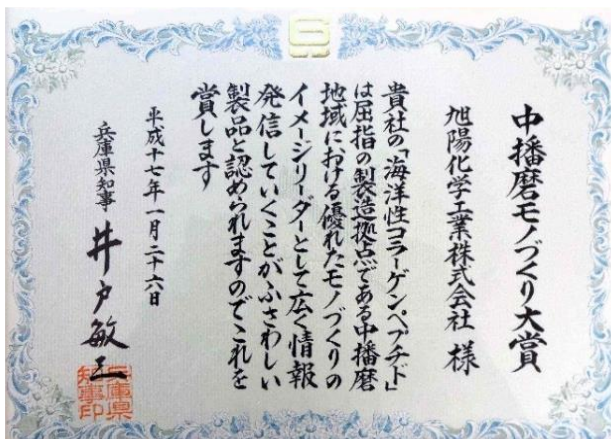 中播磨モノづくり大賞
旭陽化学工業株式会社 様
貴社の「海洋性コラーゲンペプチド」
は屈指の製造拠点である中播磨
地域における優れたモノづくりの
イメージリーダーとして広く情報
発信していくことがふさわしい
製品と認められますのでこれを
賞します
平成十七年一月二十六日
兵庫県知事 井戸敏三
兵庫県
知事印